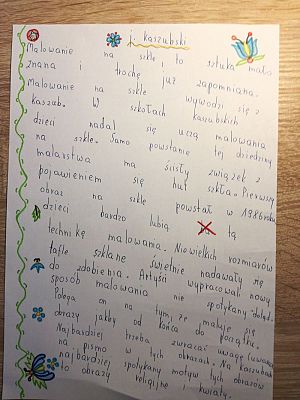 j. kaszubski
Malowanie na szkle to sztuka mało
znana i trochę już zapomniana.
Malowanie na szkle wywodzi się z
Kaszub. W szkołach kaszubskich
dzieci nadal się uczą malowania
na szkle. Samo powstanie tej dziedziny
malarstwa ma ścisły związek z
pojawieniem się hut szkła. Pierwszy
obraz na szkle powstał w 1986roku
dzieci bardzo lubią tą
technikę malowania. Niewielkich rozmiarów
tafle szklane świetnie nadawały się
do zdobienia. Artyści wypracowali nowy
sposób malowania nie spotykany dotąd.
Polega on na tym, że maluje się
obrazy jakby od końca do początku.
Najbardziej trzeba zwracać uwagę (uważać
na pismo w tych obrazach. Na kaszubach
najbardziej spotykany motyw tych obrazów
to obrazy religijne i kwiaty.